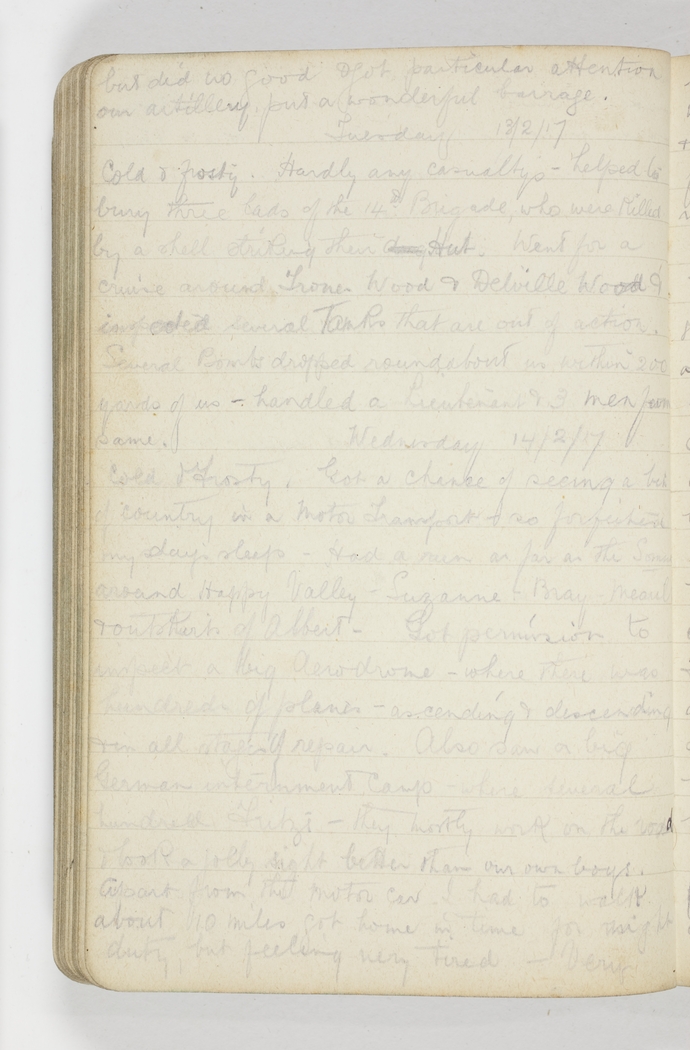 but did no good & got particular attention
our artillery put a wonderful barrage.
Tuesday 13/2/17
Cold & frosty. Hardly any casualtys - helped to
bury three lads of the 14th Brigade, who were killed
by a shell striking their Hut. Went for a
cruise around Trones Wood & Delville Wood &
inspected several Tanks that are out of action.
Several Bombs dropped roundabout us within 200
yards of us - handled a Lieutenant & 3 men from
same. Wednesday 14/2/17
Cold & Frosty. Got a chance of seeing a bit
of country in a Motor Transport & so forfeited
my days sleep - Had a run as far as the
around Happy Valley - Suzanne - Bray -
& outskirts of Albert - Got permission to
inspect a big Aerodrome - where there was
hundreds of planes - ascending & descending
& in all stages of repair. Also saw a big
German internment Camp - where several
hundred Fritzs - they mostly work on the road
& look a jolly sight better than our own boys.
Apart from the motor car I had to walk
about 10 miles got home in time for night
duty, but feeling very tired - Very